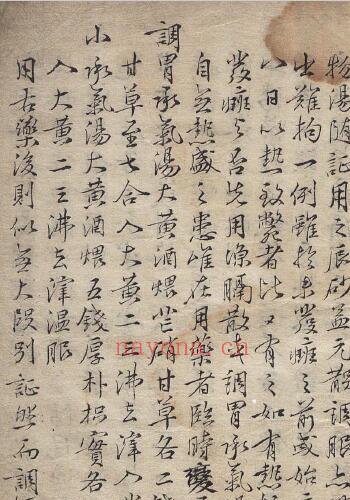 物湯随証用之辰砂益元散調服上
出難拘一例雖於未發癍之前或始
八日以熱致斃者比比有之如有熱
發癍之否先用涼膈散調胃承氣
自無熱盛之患唯在用藥者臨時變
調胃承氣湯大黃酒煨芒硝甘草各二
甘草至七合入大黃二三沸去滓入
小承氣湯大黃酒煨五錢厚朴枳實各
入大黃二三沸去滓温服
用古藥後則似無大誤別証然而調
nayona.cn